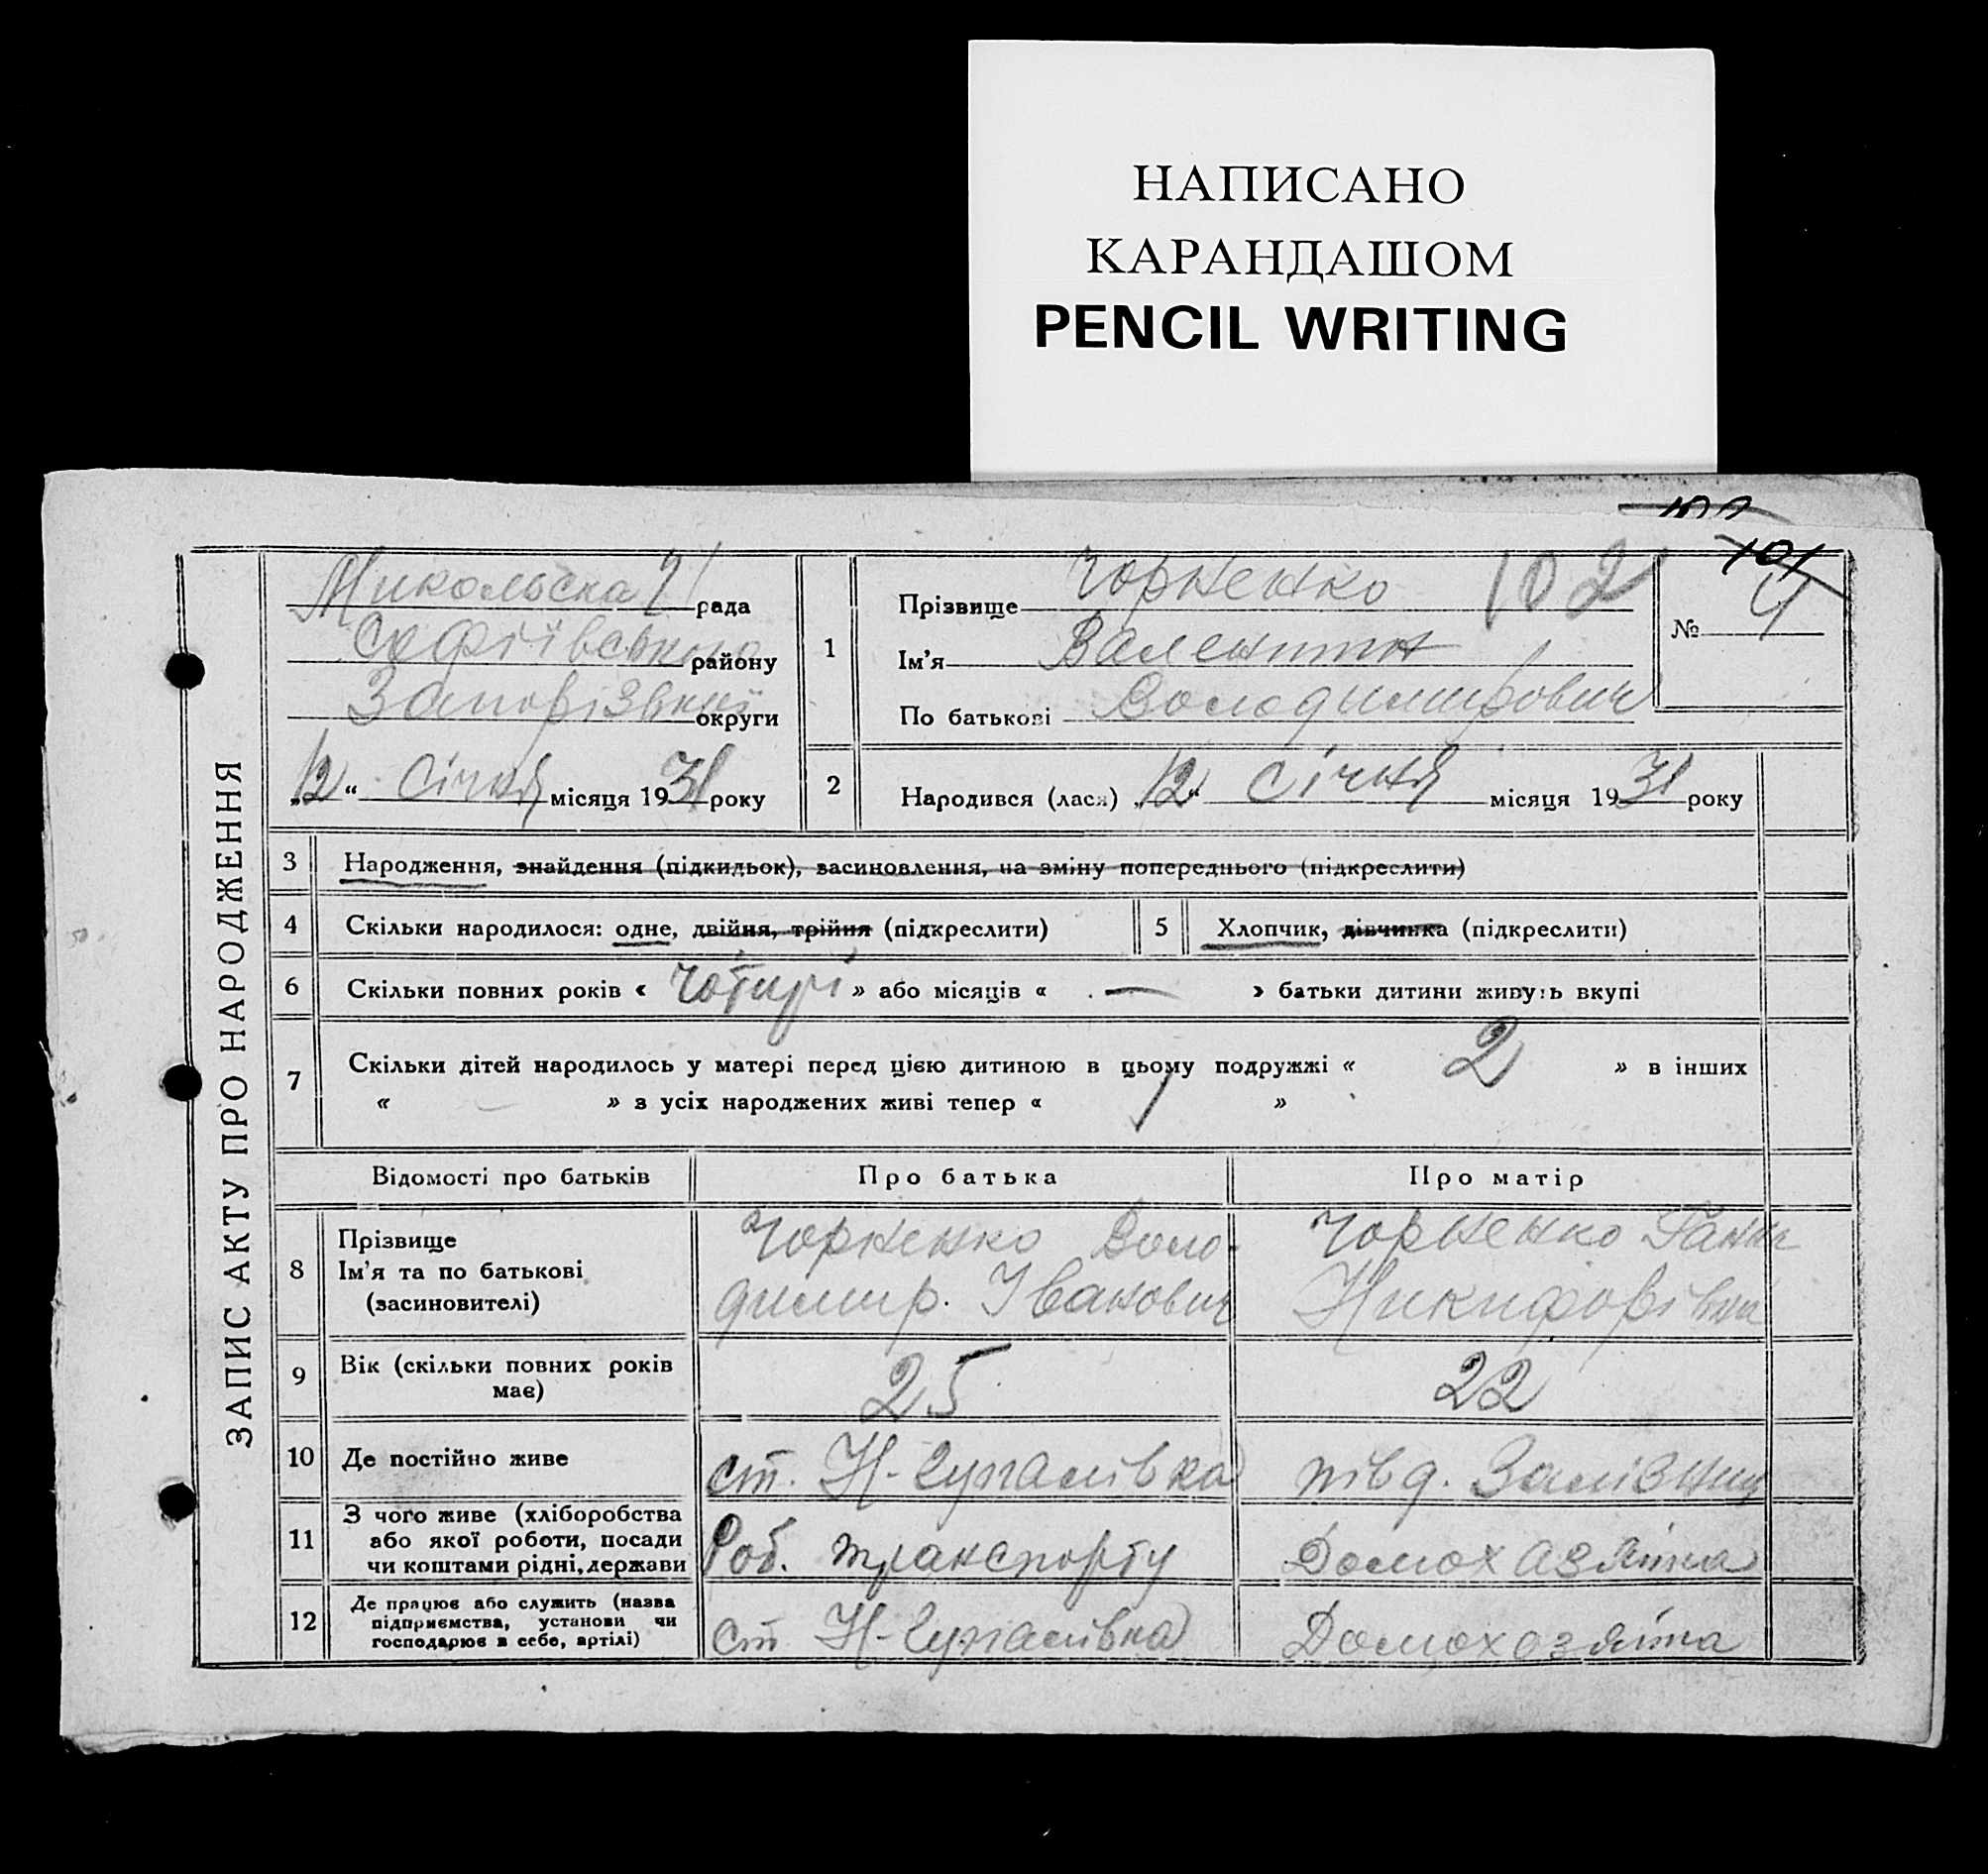 НАПИСАНО
КАРАНДАШОМ
PENCIL WRITING
100
101
102
ЗАПИС АКТУ ПРО НАРОДЖЕННЯ
Микольська рада
Софіївського району
Запорізької округи
„12“ Січня місяця 1931 року
1
Прізвище Чорненко
Ім'я Валентин
По батькові Володимирович
№ 4
2
Народився (лася) „12“ Січня місяця 1931 року
3 Народження, знайдення (підкидьок), засиновлення, на зміну попереднього (підкреслити)
4 Скільки народилося: одне, двійня, трійня (підкреслити)
5 Хлопчик, дівчинка (підкреслити)
6 Скільки повних років « Чотирі » або місяців « — » батьки дитини живуть вкупі
7 Скільки дітей народилось у матері перед цією дитиною в цьому подружжі « 2 » в інших
« » з усіх народжених живі тепер « 1 »
Відомості про батьків Про батька Про матір
8 Прізвище
Ім'я та по батькові
(засиновителі)
Чорненко Воло-
димир. Іванович
Чорненко Ганна
Никифорівна
9 Вік (скільки повних років
має)
25
22
10 Де постійно живе
ст. Н-
півд. Залізниц
11 З чого живе (хліборобства
або якої роботи, посади
чи коштами рідні, держави
Роб. транспорту
Домохазяйка
12 Де працює або служить (назва
підприємства, установи чи
господарює в себе, артілі)
ст Н-
Домохозяйка